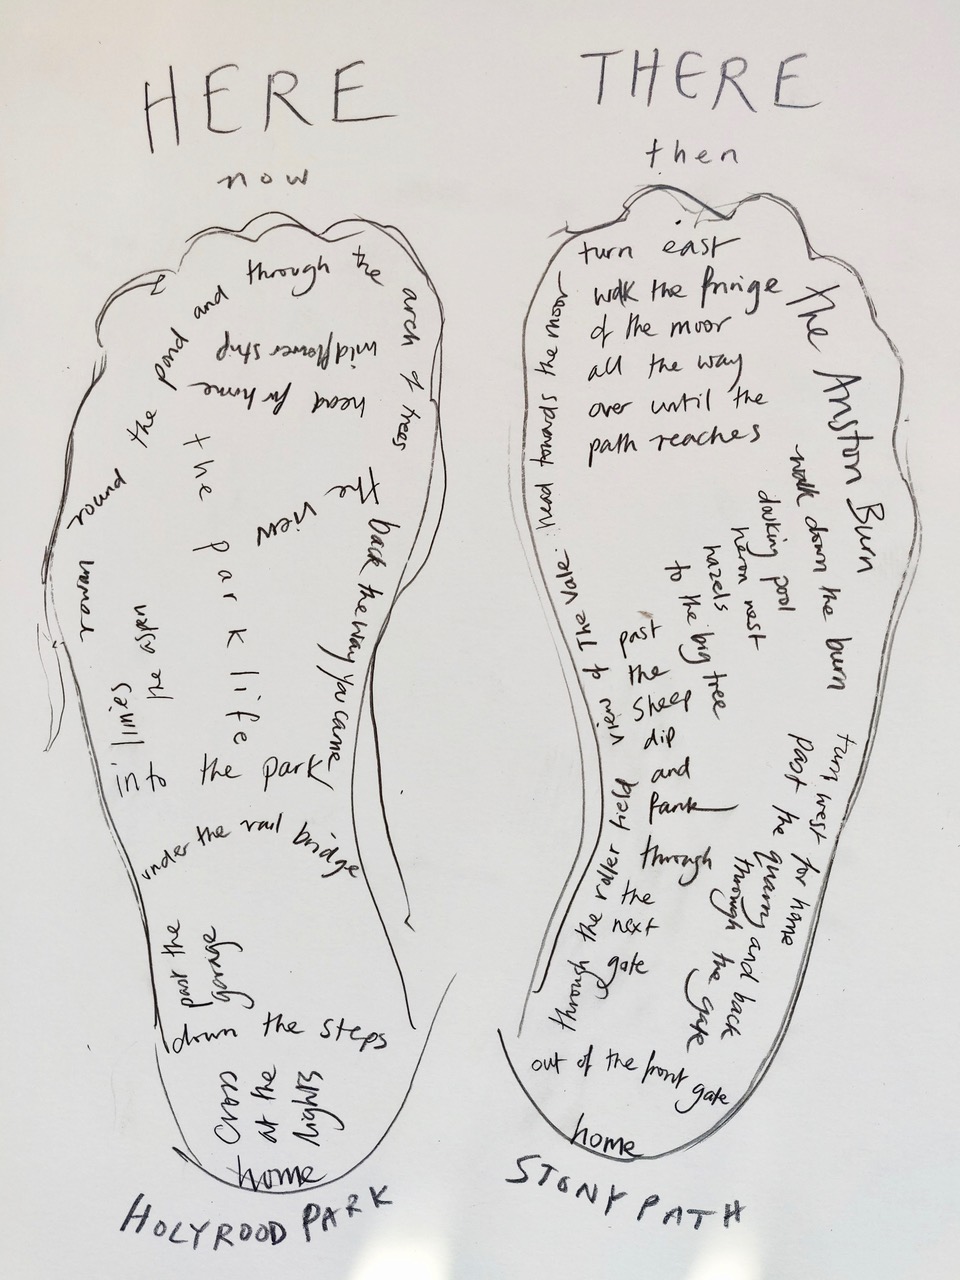 HERE
now
the arch of trees
and through
round the pond
wildflower strip
head for home
the parklife
the
view
back the way you came
limes
the
into the park
under the rail bridge
past the
garage
down the steps
cross
at the
lights
home
HOLYROOD PARK
THERE
then
turn east
walk the fringe
of the moor
all the way
over until the
path reaches
The Anston Burn
walk down the burn
pool
heron nest
hazels
to the big tree
turn west for home
past the quarry and back
through the gate
head towards the moor
view of The Vale
past
the
sheep
dip
and
fank
through
the
next
gate
through the roller field
out of the front gate
home
STONYPATH